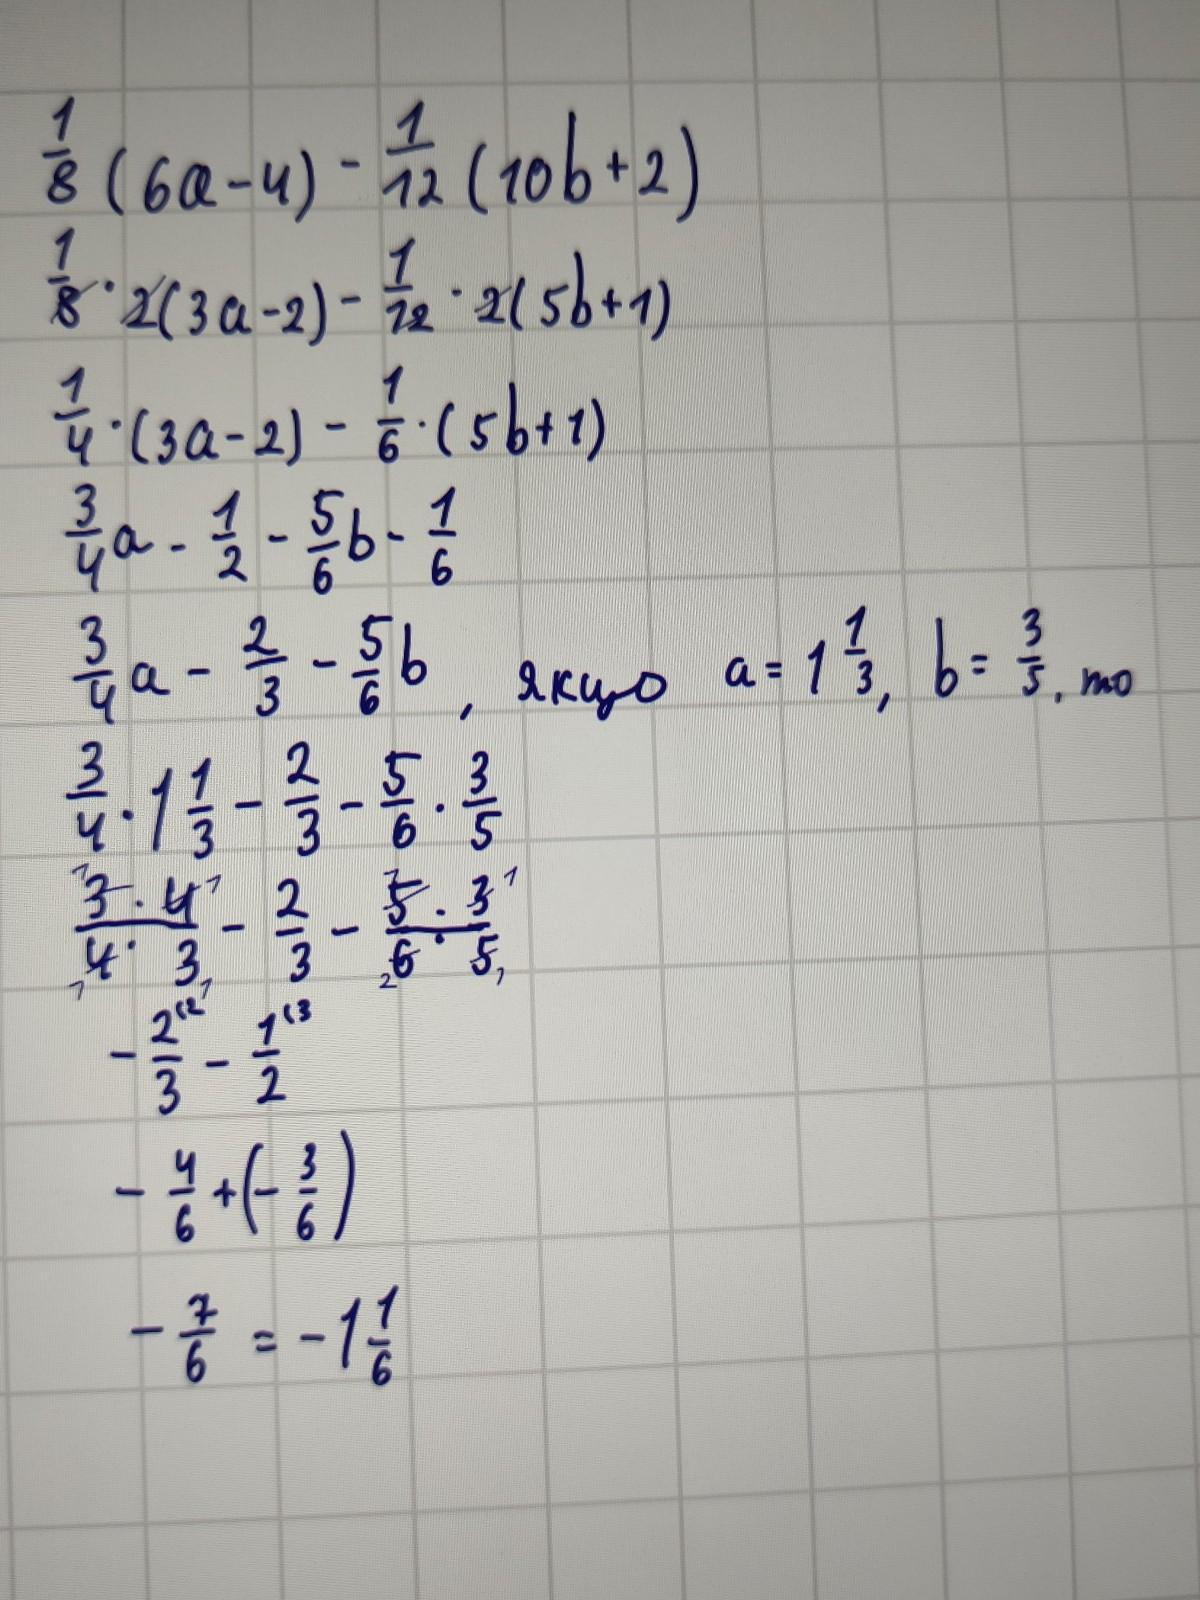 1/8 (6a-4) - 1/12 (10b+2)
1/8 · 2(3a-2) - 1/12 · 2(5b+1)
1/4 · (3a-2) - 1/6 · (5b+1)
3/4 a - 1/2 - 5/6 b - 1/6
3/4 a - 2/3 - 5/6 b , якщо a = 1 1/3, b = 3/5, то
3/4 · 1 1/3 - 2/3 - 5/6 · 3/5
3 · 4 / 4 · 3 - 2/3 - 5 · 3 / 6 · 5
- 2/3 (2 - 1/2 (3
- 4/6 + (- 3/6)
- 7/6 = - 1 1/6